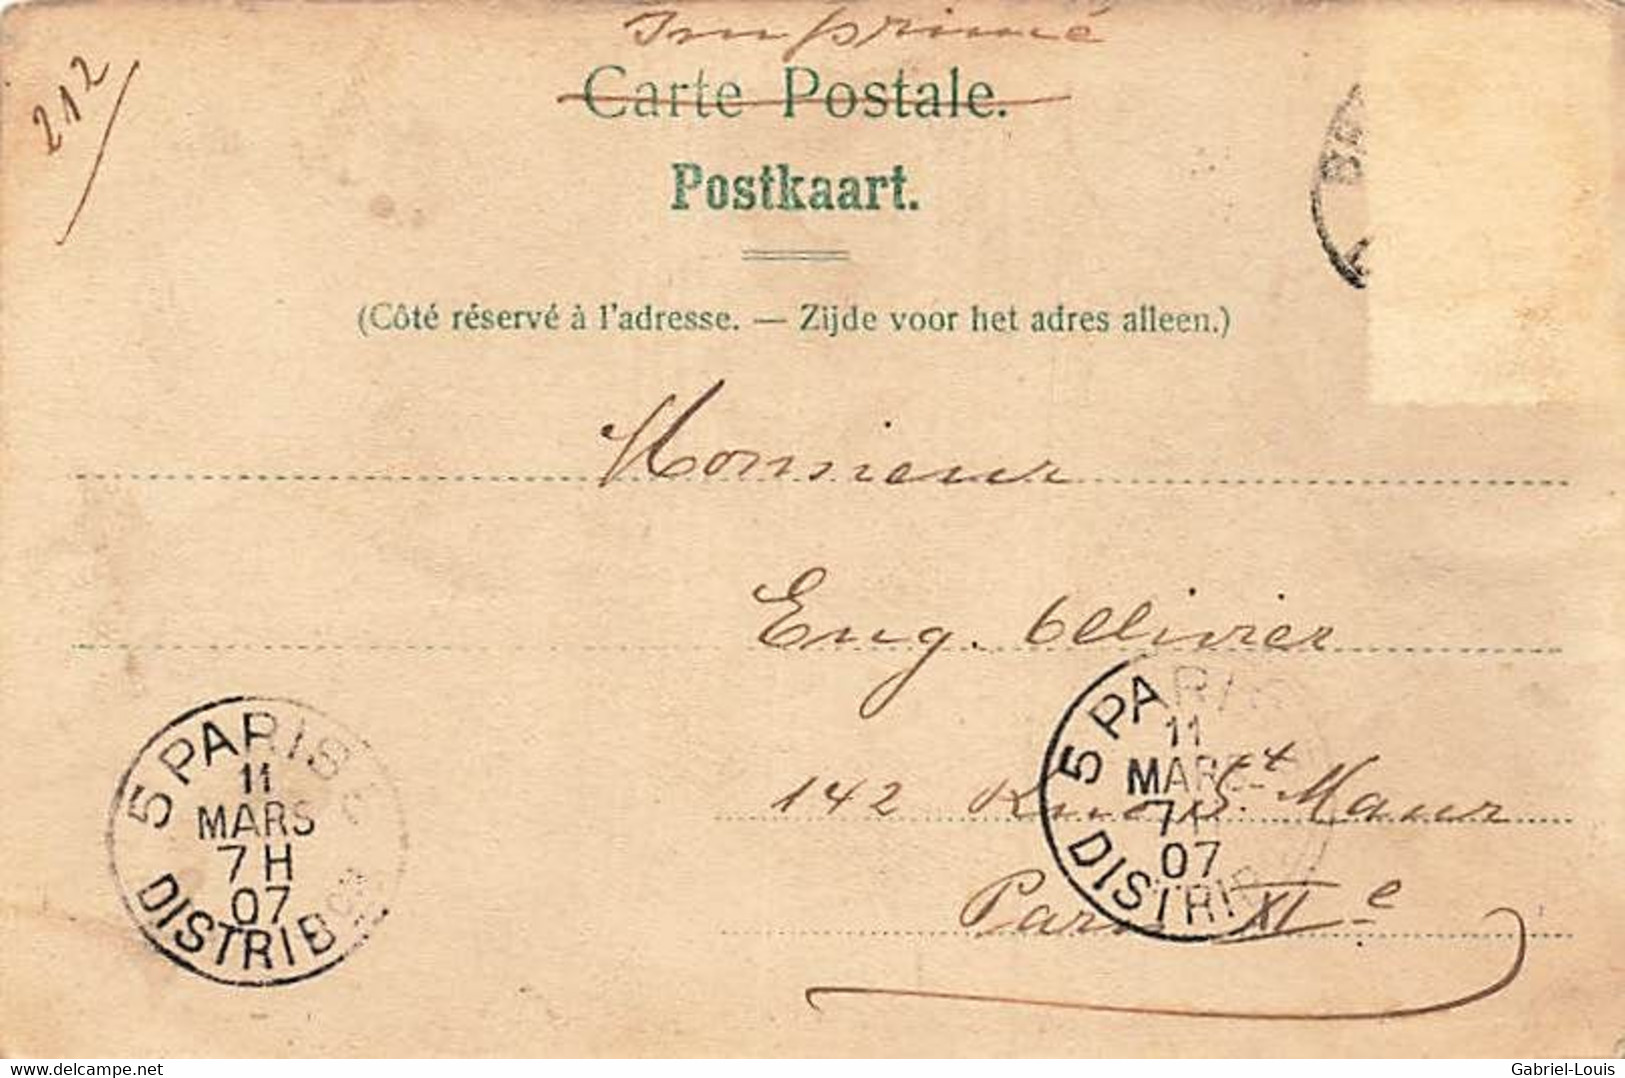 Imprimé
212
Carte Postale.
Postkaart.
(Côté réservé à l'adresse. — Zijde voor het adres alleen.)
Monsieur
Eug. Ollivier
142 Rue St. Maur
Paris XIe
5 PARIS
11
MARS
7 H
07
DISTRIB
5 PARIS
11
MARS
7 H
07
DISTRIB
www.delcampe.net
Gabriel-Louis